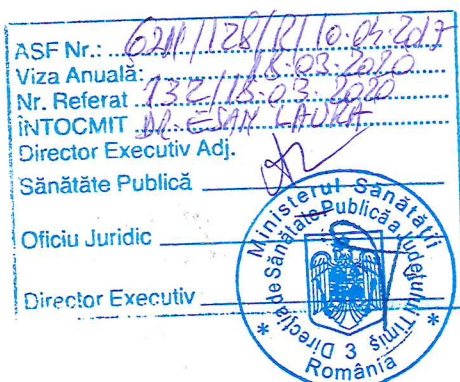 ASF Nr.: 6211/128/R/10.04.2017
Viza Anuală: 18.03.2020
Nr. Referat 132/18.03.2020
ÎNTOCMIT DR. ESAN LAURA
Director Executiv Adj.
Sănătate Publică
Oficiu Juridic
Director Executiv
Ministerul Sănătății
Direcția de Sănătate Publică a Județului Timiș
3
România